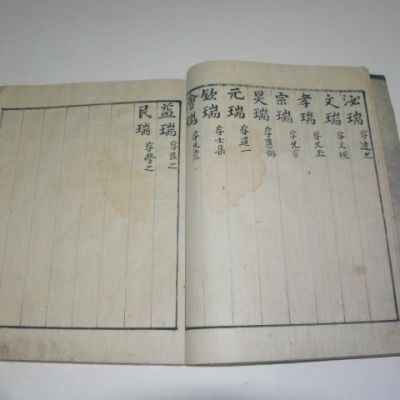 泌瑞 字達之
文瑞 字文現
孝瑞 字允玉
宗瑞 字允言
炅瑞 字慶弼
元瑞 字道一
欽瑞 字士集
會瑞 字允
益瑞 字益之
民瑞 字學之